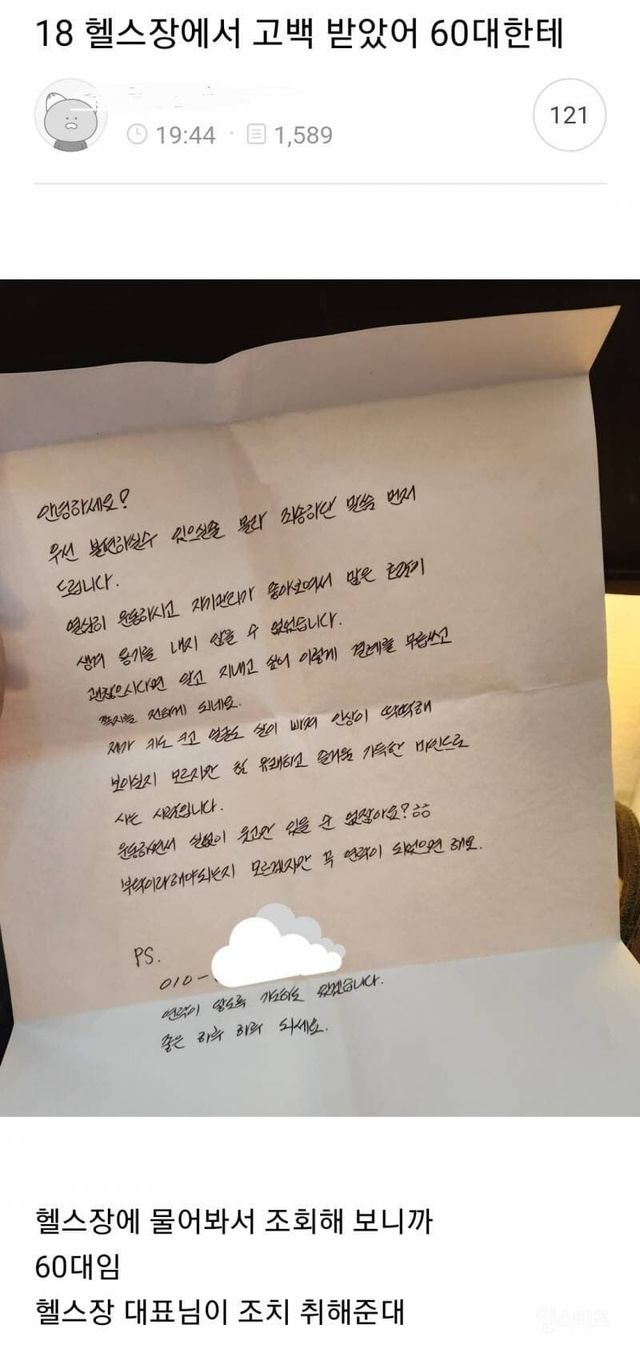 18 헬스장에서 고백 받았어 60대한테
19:44 · 1,589
121
안녕하세요?
우선 불편하실수 있으실줄 몰라 죄송하단 말씀 먼저
드립니다.
열심히 운동하시고 자기관리가 좋아보여서 많은 호감이
생겨 용기를 내지 않을 수 없었습니다.
괜찮으시다면 알고 지내고 싶어 이렇게 결례를 무릅쓰고
쪽지를 전하게 되네요.
제가 키도 크고 얼굴도 살이 빠져 인상이 딱딱해
보이실지 모르지만 참 유쾌하고 즐거움 가득한 마인드로
사는 사람입니다.
운동하면서 실없이 웃고만 있을 순 없잖아요? ㅎㅎ
부탁이라해야되는지 모르겠지만 꼭 연락이 되었으면 해요.
PS.
010-
연락이 않도록 기도하겠습니다.
좋은 하루 하루 되세요.
헬스장에 물어봐서 조회해 보니까
60대임
헬스장 대표님이 조치 취해준대
인스티즈